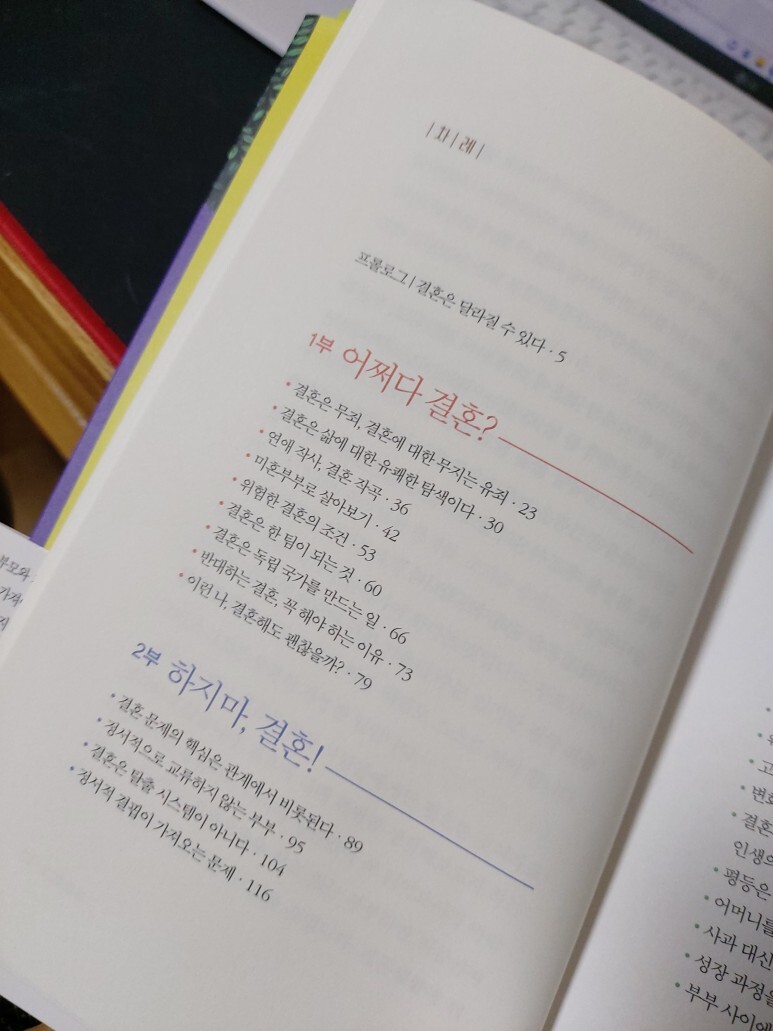 |차|례|
프롤로그 | 결혼은 달라질 수 있다 · 5
1부 어쩌다 결혼?
• 결혼은 무죄, 결혼에 대한 무지는 유죄 · 23
• 결혼은 삶에 대한 유쾌한 탐색이다 · 30
• 연애 작사, 결혼 작곡 · 36
• 미혼부부로 살아보기 · 42
• 위험한 결혼의 조건 · 53
• 결혼은 한 팀이 되는 것 · 60
• 결혼은 독립 국가를 만드는 일 · 66
• 반대하는 결혼, 꼭 해야 하는 이유 · 73
• 이런 나, 결혼해도 괜찮을까? · 79
2부 하지마, 결혼!
• 결혼 문제의 핵심은 관계에서 비롯된다 · 89
• 정서적으로 교류하지 않는 부부 · 95
• 결혼은 탈출 시스템이 아니다 · 104
• 정서적 결핍이 가져오는 문제 · 116
부모와
• 고
• 변호
• 결혼
인생의
• 평등은
• 어머니를
• 사과 대신
• 성장 과정을
• 부부 사이에